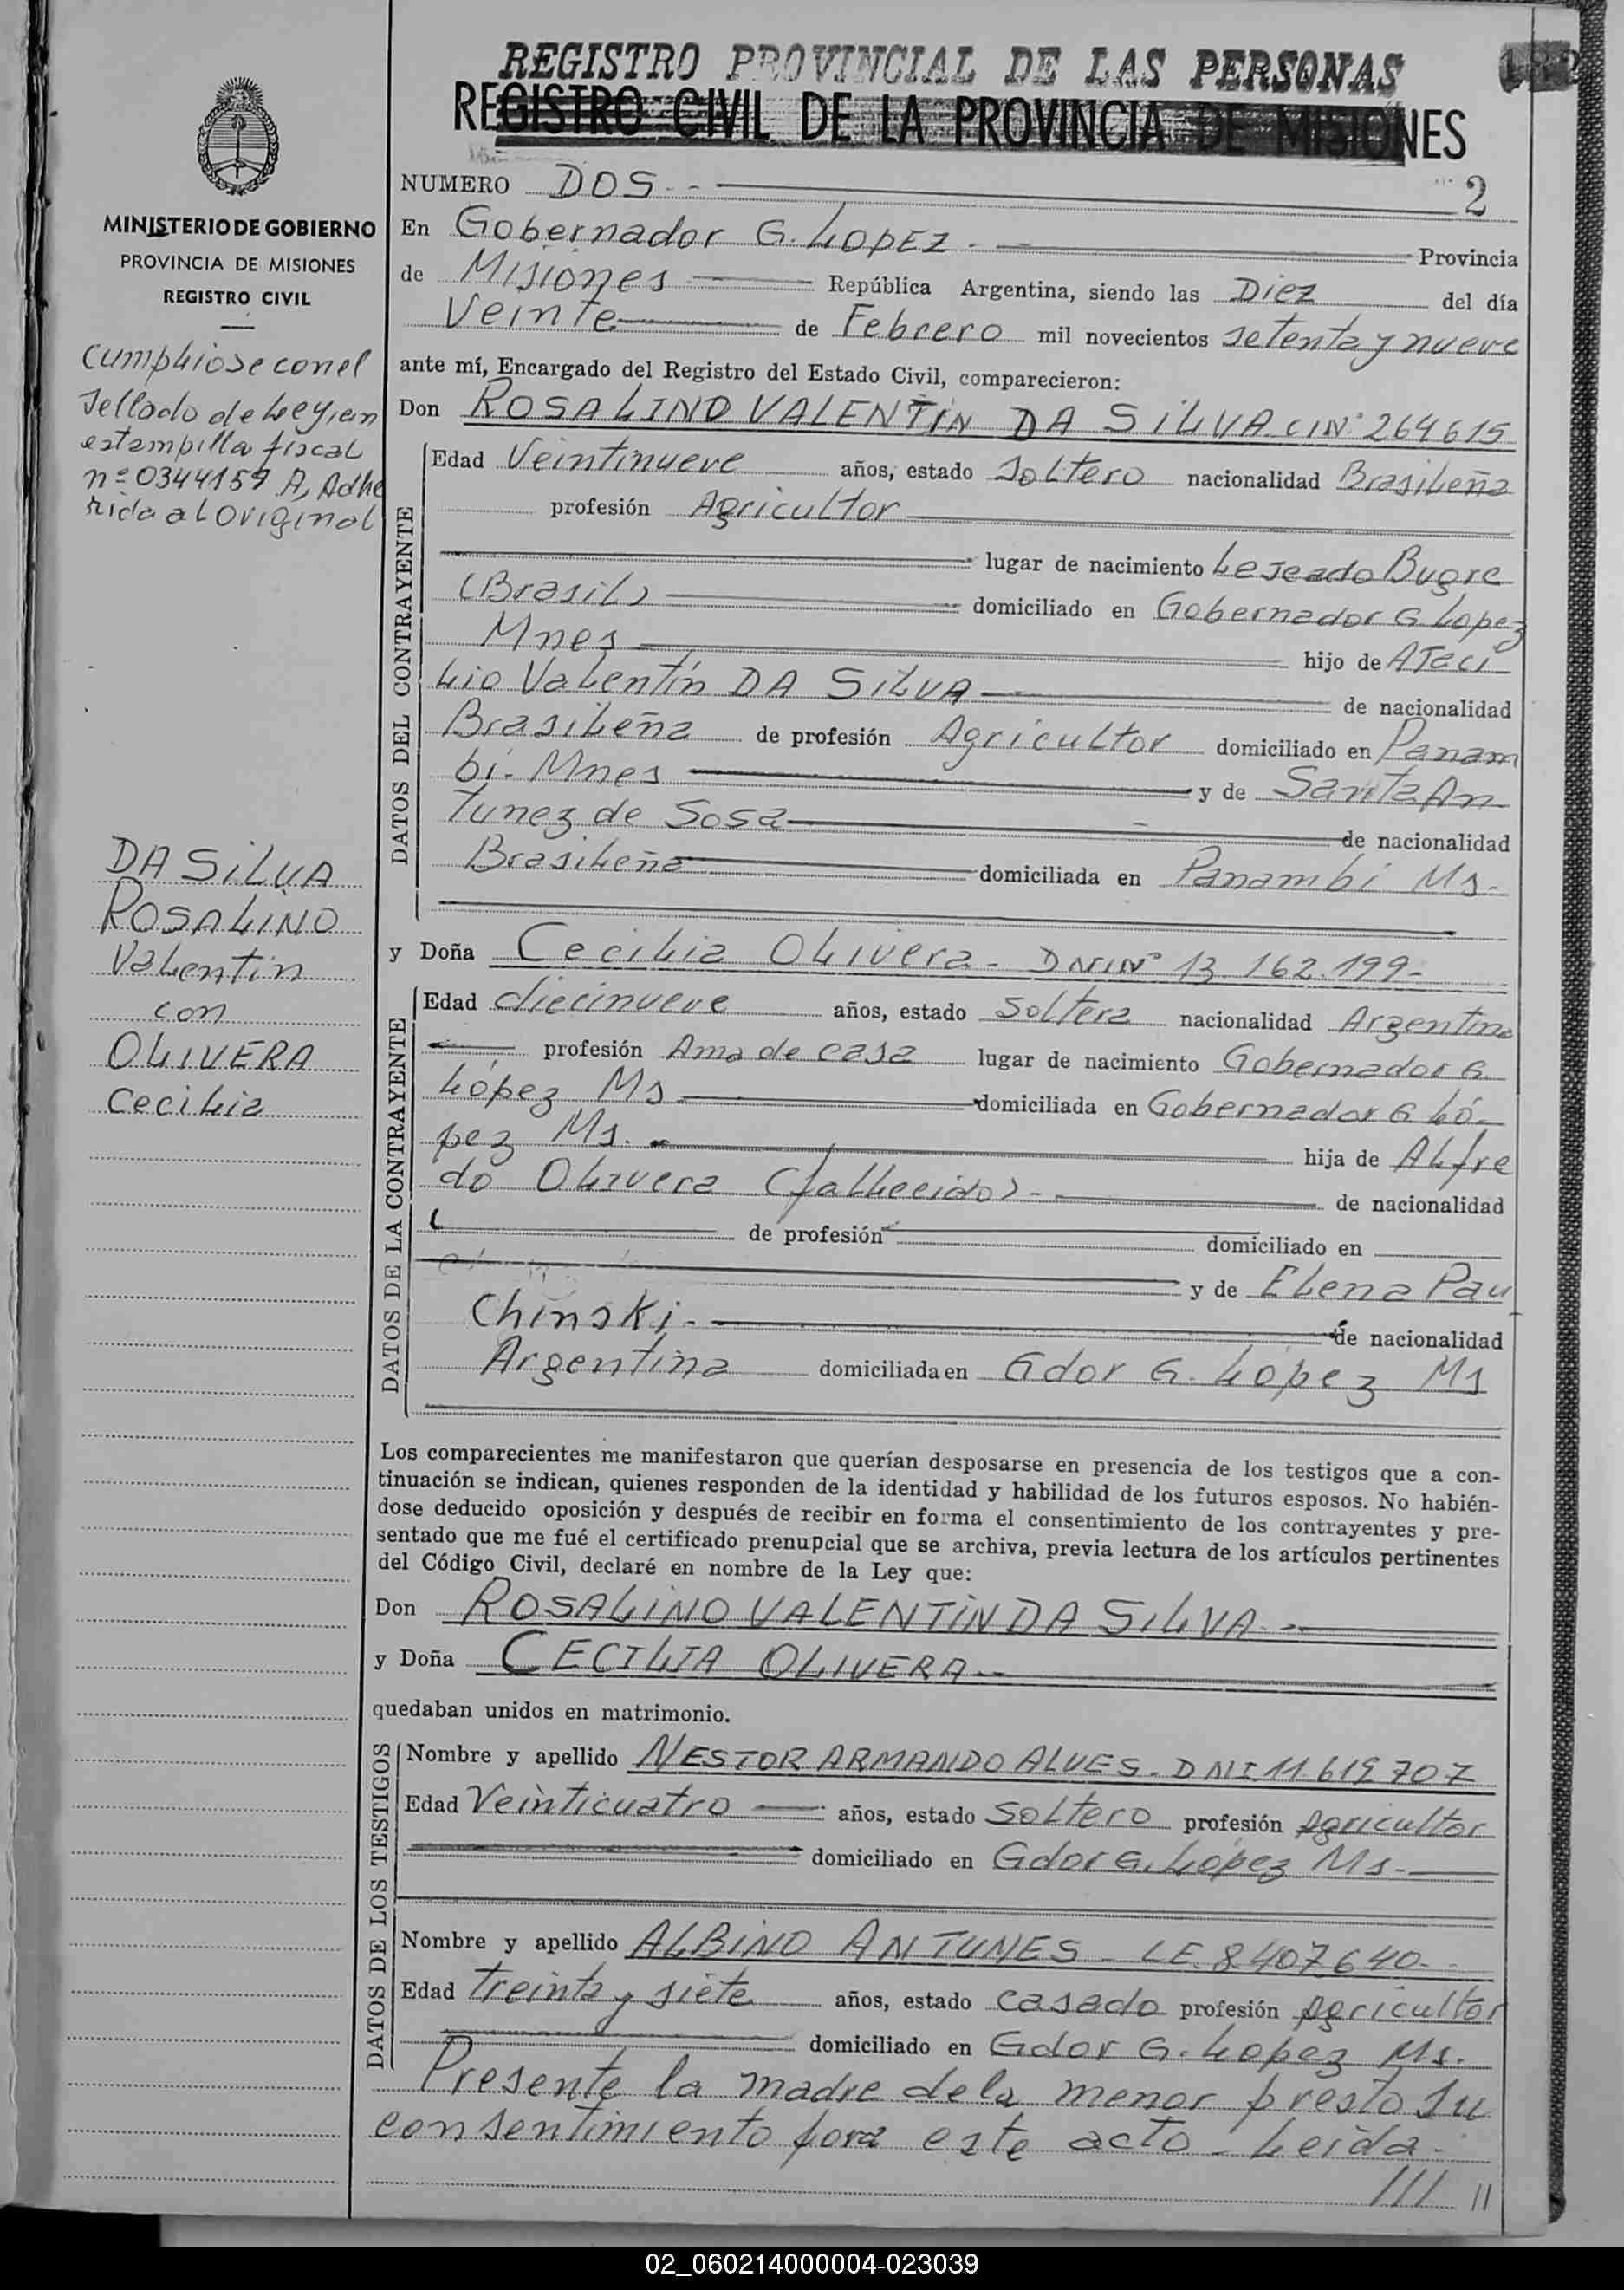 REGISTRO PROVINCIAL DE LAS PERSONAS
REGISTRO CIVIL DE LA PROVINCIA DE MISIONES
NUMERO DOS.-
2
En Gobernador G. LOPEZ. Provincia
de Misiones República Argentina, siendo las Diez del día
Veinte de Febrero mil novecientos setenta y nueve
ante mí, Encargado del Registro del Estado Civil, comparecieron:
Don ROSALINO VALENTIN DA SILVA CIN° 264615
Edad Veintinueve años, estado Soltero nacionalidad Brasileña
profesión Agricultor
lugar de nacimiento Lejeado Bugre
(Brasil) domiciliado en Gobernador G. Lopez
Mnes hijo de Ataci
lio Valentín DA SILVA de nacionalidad
Brasileña de profesión Agricultor domiciliado en Panam
bi- Mnes y de Santa An
tunez de Sosa de nacionalidad
Brasileña domiciliada en Panambí Ms-
DATOS DEL CONTRAYENTE
y Doña Cecilia Olivera- DNIN° 13.162.199-
Edad diecinueve años, estado Soltera nacionalidad Argentina
profesión Ama de casa lugar de nacimiento Gobernador G.
López Ms domiciliada en Gobernador G Ló-
pez Ms. hija de Alfre
do Olivera (fallecido)- de nacionalidad
de profesión domiciliado en
y de Elena Pau
Chinski- de nacionalidad
Argentina domiciliada en Gdor G. López Ms
DATOS DE LA CONTRAYENTE
Los comparecientes me manifestaron que querían desposarse en presencia de los testigos que a con-
tinuación se indican, quienes responden de la identidad y habilidad de los futuros esposos. No habién-
dose deducido oposición y después de recibir en forma el consentimiento de los contrayentes y pre-
sentado que me fué el certificado prenupcial que se archiva, previa lectura de los artículos pertinentes
del Código Civil, declaré en nombre de la Ley que:
Don ROSALINO VALENTIN DA SILVA.-
y Doña CECILIA OLIVERA.-
quedaban unidos en matrimonio.
Nombre y apellido NESTOR ARMANDO ALVES- DNI 11.619.707
Edad Veinticuatro años, estado Soltero profesión Agricultor
domiciliado en Gdor G. López Ms-
Nombre y apellido ALBINO ANTUNES- LE. 8.407.640-
Edad treinta y siete años, estado casado profesión Agricultor
domiciliado en Gdor G. Lopez Ms.
DATOS DE LOS TESTIGOS
Presente la madre de la menor presto su
consentimiento para este acto- Leída-
/// //
MINISTERIO DE GOBIERNO
PROVINCIA DE MISIONES
REGISTRO CIVIL
Cumpliose con el
Sellado de Ley en
estampilla fiscal
n°0344159 A, Adhe
rida al Original
DA SILVA
ROSALINO
Valentin
con
OLIVERA
Cecilia
02_060214000004-023039